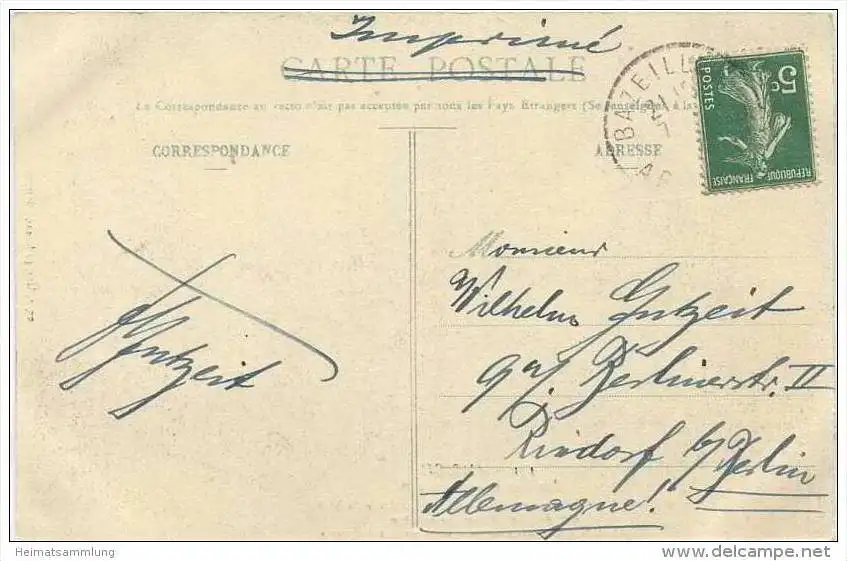 Imprimé
CARTE POSTALE
La Correspondance au recto n'est pas acceptée par tous les Pays Etrangers (Se renseigner à la
CORRESPONDANCE
ADRESSE
BAZEILL
5c
POSTES
REPUBLIQUE FRANÇAISE
Monsieur
Wilhelm Gutzeit
Berlinerstr. II
Rixdorf b/ Berlin
Allemagne!
Gutzeit
Heimatsammlung
delcampe.net